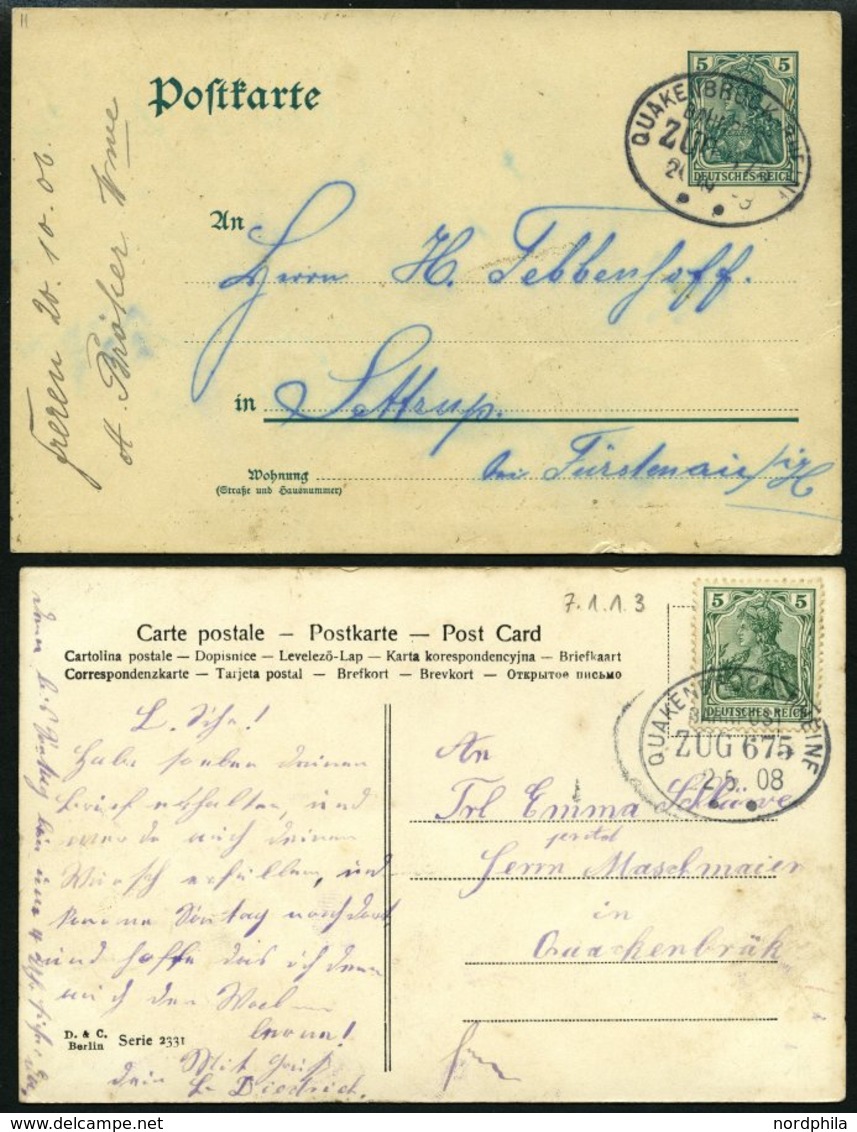 Postkarte
5 5
DEUTSCHES REICH
QUAKENBRÜCK RHEINE
ZUG
An
Herrn H. Tebbenhoff.
in Settrup.
bei Fürstenau i/H
Wohnung
(Straße und Hausnummer)
Freren 20.10.06.
A. Bröker Wwe
7.1.1.3
Carte postale – Postkarte – Post Card
Cartolina postale – Dopisnice – Levelező-Lap – Karta korespondencyjna – Briefkaart
Correspondenzkarte – Tarjeta postal – Brefkort – Brevkort – Открытое письмо
5 5
DEUTSCHES REICH
QUAKENBRÜCK RHEINE
BAHNPOST
ZUG 675
2.5. 08
L.
Habe soeben deinen
Brief erhalten, und
werde auch deinen
Wunsch erfüllen, und
komme Sontag nach dort,
und hoffe das ich denn
Mit Gruß
dein L. Diedrich.
An
Frl Emma
Herrn Maschmaier
in
Quackenbrük
D. & C.
Berlin Serie 2331
nordphila